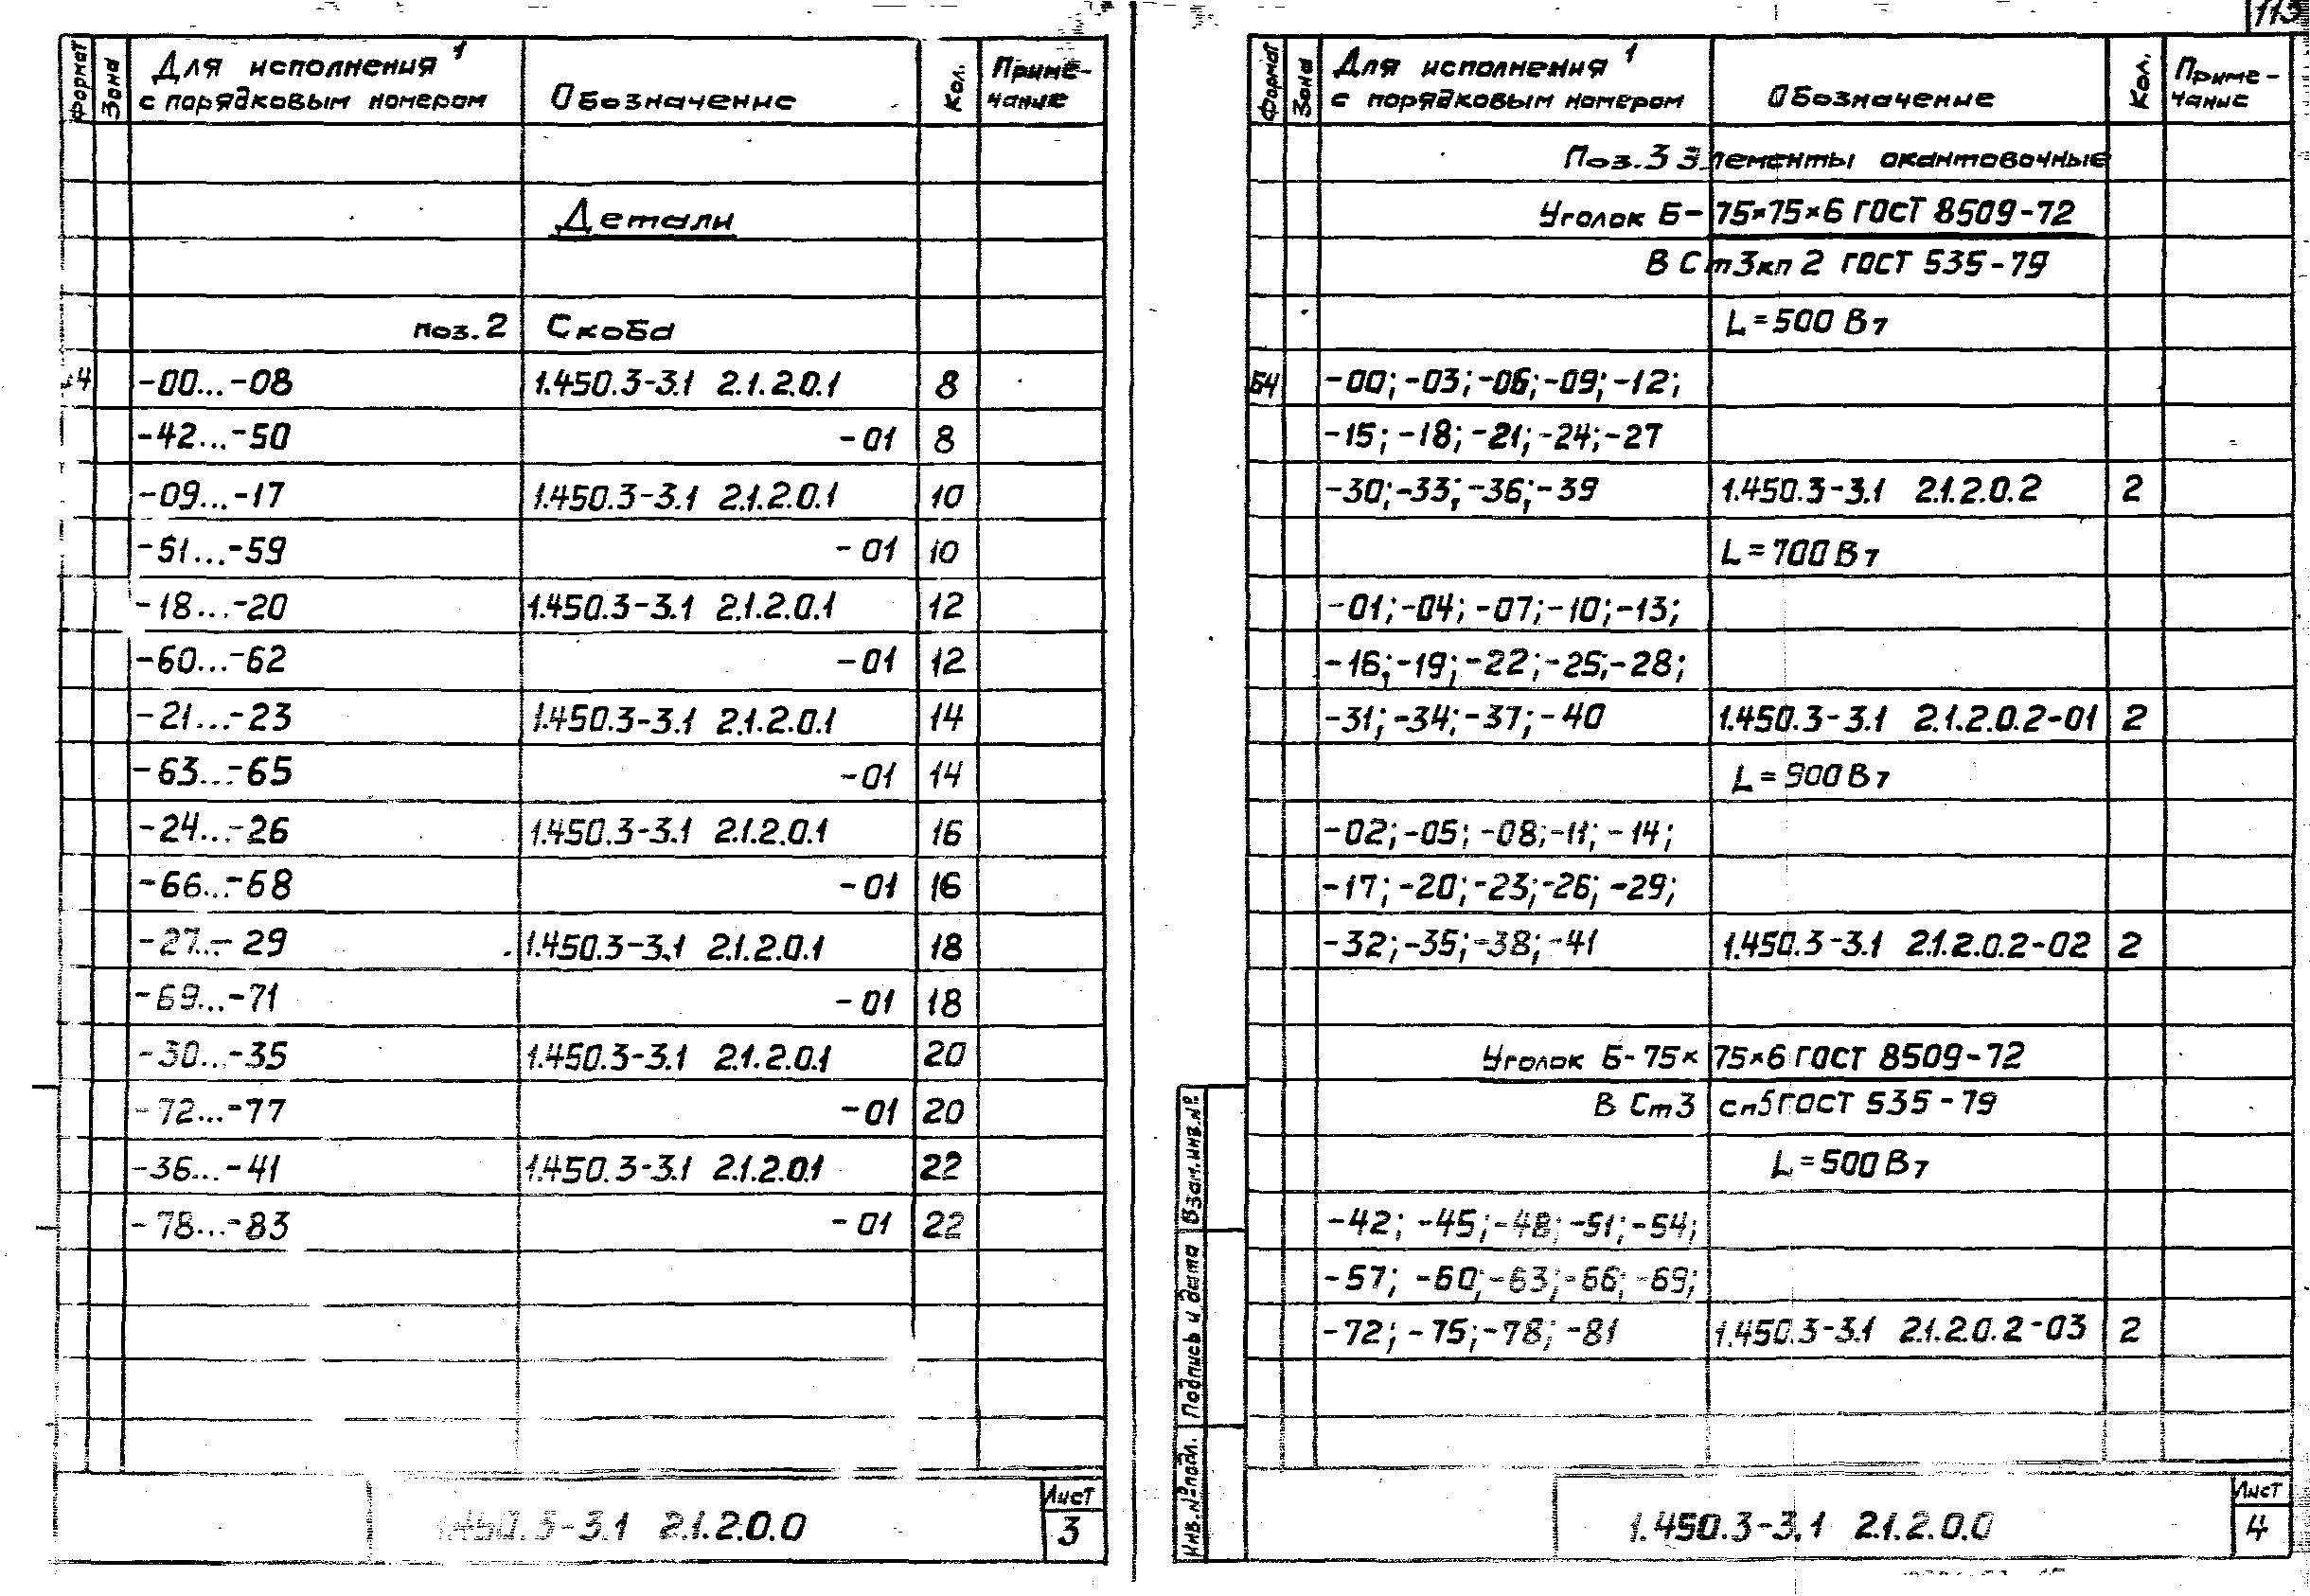 Формат Зона Для исполнения 1 с порядковым номером Обозначение Кол. Приме-чание
Детали
поз. 2 Скоба
-00...-08 1.450.3-3.1 2.1.2.0.1 8
-42...-50 -01 8
-09...-17 1.450.3-3.1 2.1.2.0.1 10
-51...-59 -01 10
-18...-20 1.450.3-3.1 2.1.2.0.1 12
-60...-62 -01 12
-21...-23 1.450.3-3.1 2.1.2.0.1 14
-63...-65 -01 14
-24...-26 1.450.3-3.1 2.1.2.0.1 16
-66...-68 -01 16
-27...-29 1.450.3-3.1 2.1.2.0.1 18
-69...-71 -01 18
-30...-35 1.450.3-3.1 2.1.2.0.1 20
-72...-77 -01 20
-36...-41 1.450.3-3.1 2.1.2.0.1 22
-78...-83 -01 22
1.450.3-3.1 2.1.2.0.0
Лист
3
113
Формат Зона Для исполнения 1 с порядковым номером Обозначение Кол. Приме-чание
Поз. 3 Элементы окантовочные
Уголок Б-75×75×6 ГОСТ 8509-72
В Ст3кп2 ГОСТ 535-79
L=500 Вт
БЧ -00; -03; -06; -09; -12;
-15; -18; -21; -24; -27
-30; -33; -36; -39 1.450.3-3.1 2.1.2.0.2 2
L=700 Вт
-01; -04; -07; -10; -13;
-16; -19; -22; -25; -28;
-31; -34; -37; -40 1.450.3-3.1 2.1.2.0.2-01 2
L=900 Вт
-02; -05; -08; -11; -14;
-17; -20; -23; -26; -29;
-32; -35; -38; -41 1.450.3-3.1 2.1.2.0.2-02 2
Уголок Б-75×75×6 ГОСТ 8509-72
В Ст3 сп5 ГОСТ 535-79
L=500 Вт
-42; -45; -48; -51; -54;
-57; -60; -63; -66; -69;
-72; -75; -78; -81 1.450.3-3.1 2.1.2.0.2-03 2
Инв.№подл. Подпись и дата Взам.инв.№
1.450.3-3.1 2.1.2.0.0
Лист
4